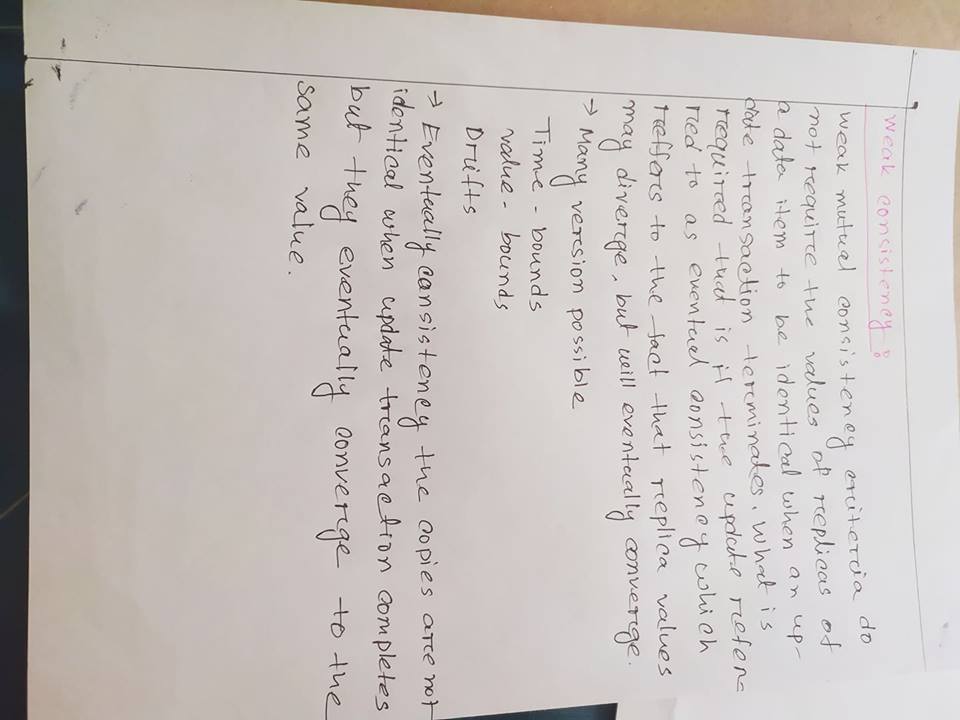 Weak consistency:
Weak mutual consistency criteria do
not require the values of replicas of
a data item to be identical when an up-
date transaction terminates. What is
required that is if the update refer-
red to as eventual consistency which
reffers to the fact that replica values
may diverge, but will eventually converge.
→ Many version possible
Time - bounds
value - bounds
Drifts
→ Eventually cansistency the copies are not
identical when update transaction completes
but they eventually converge to the
same value.